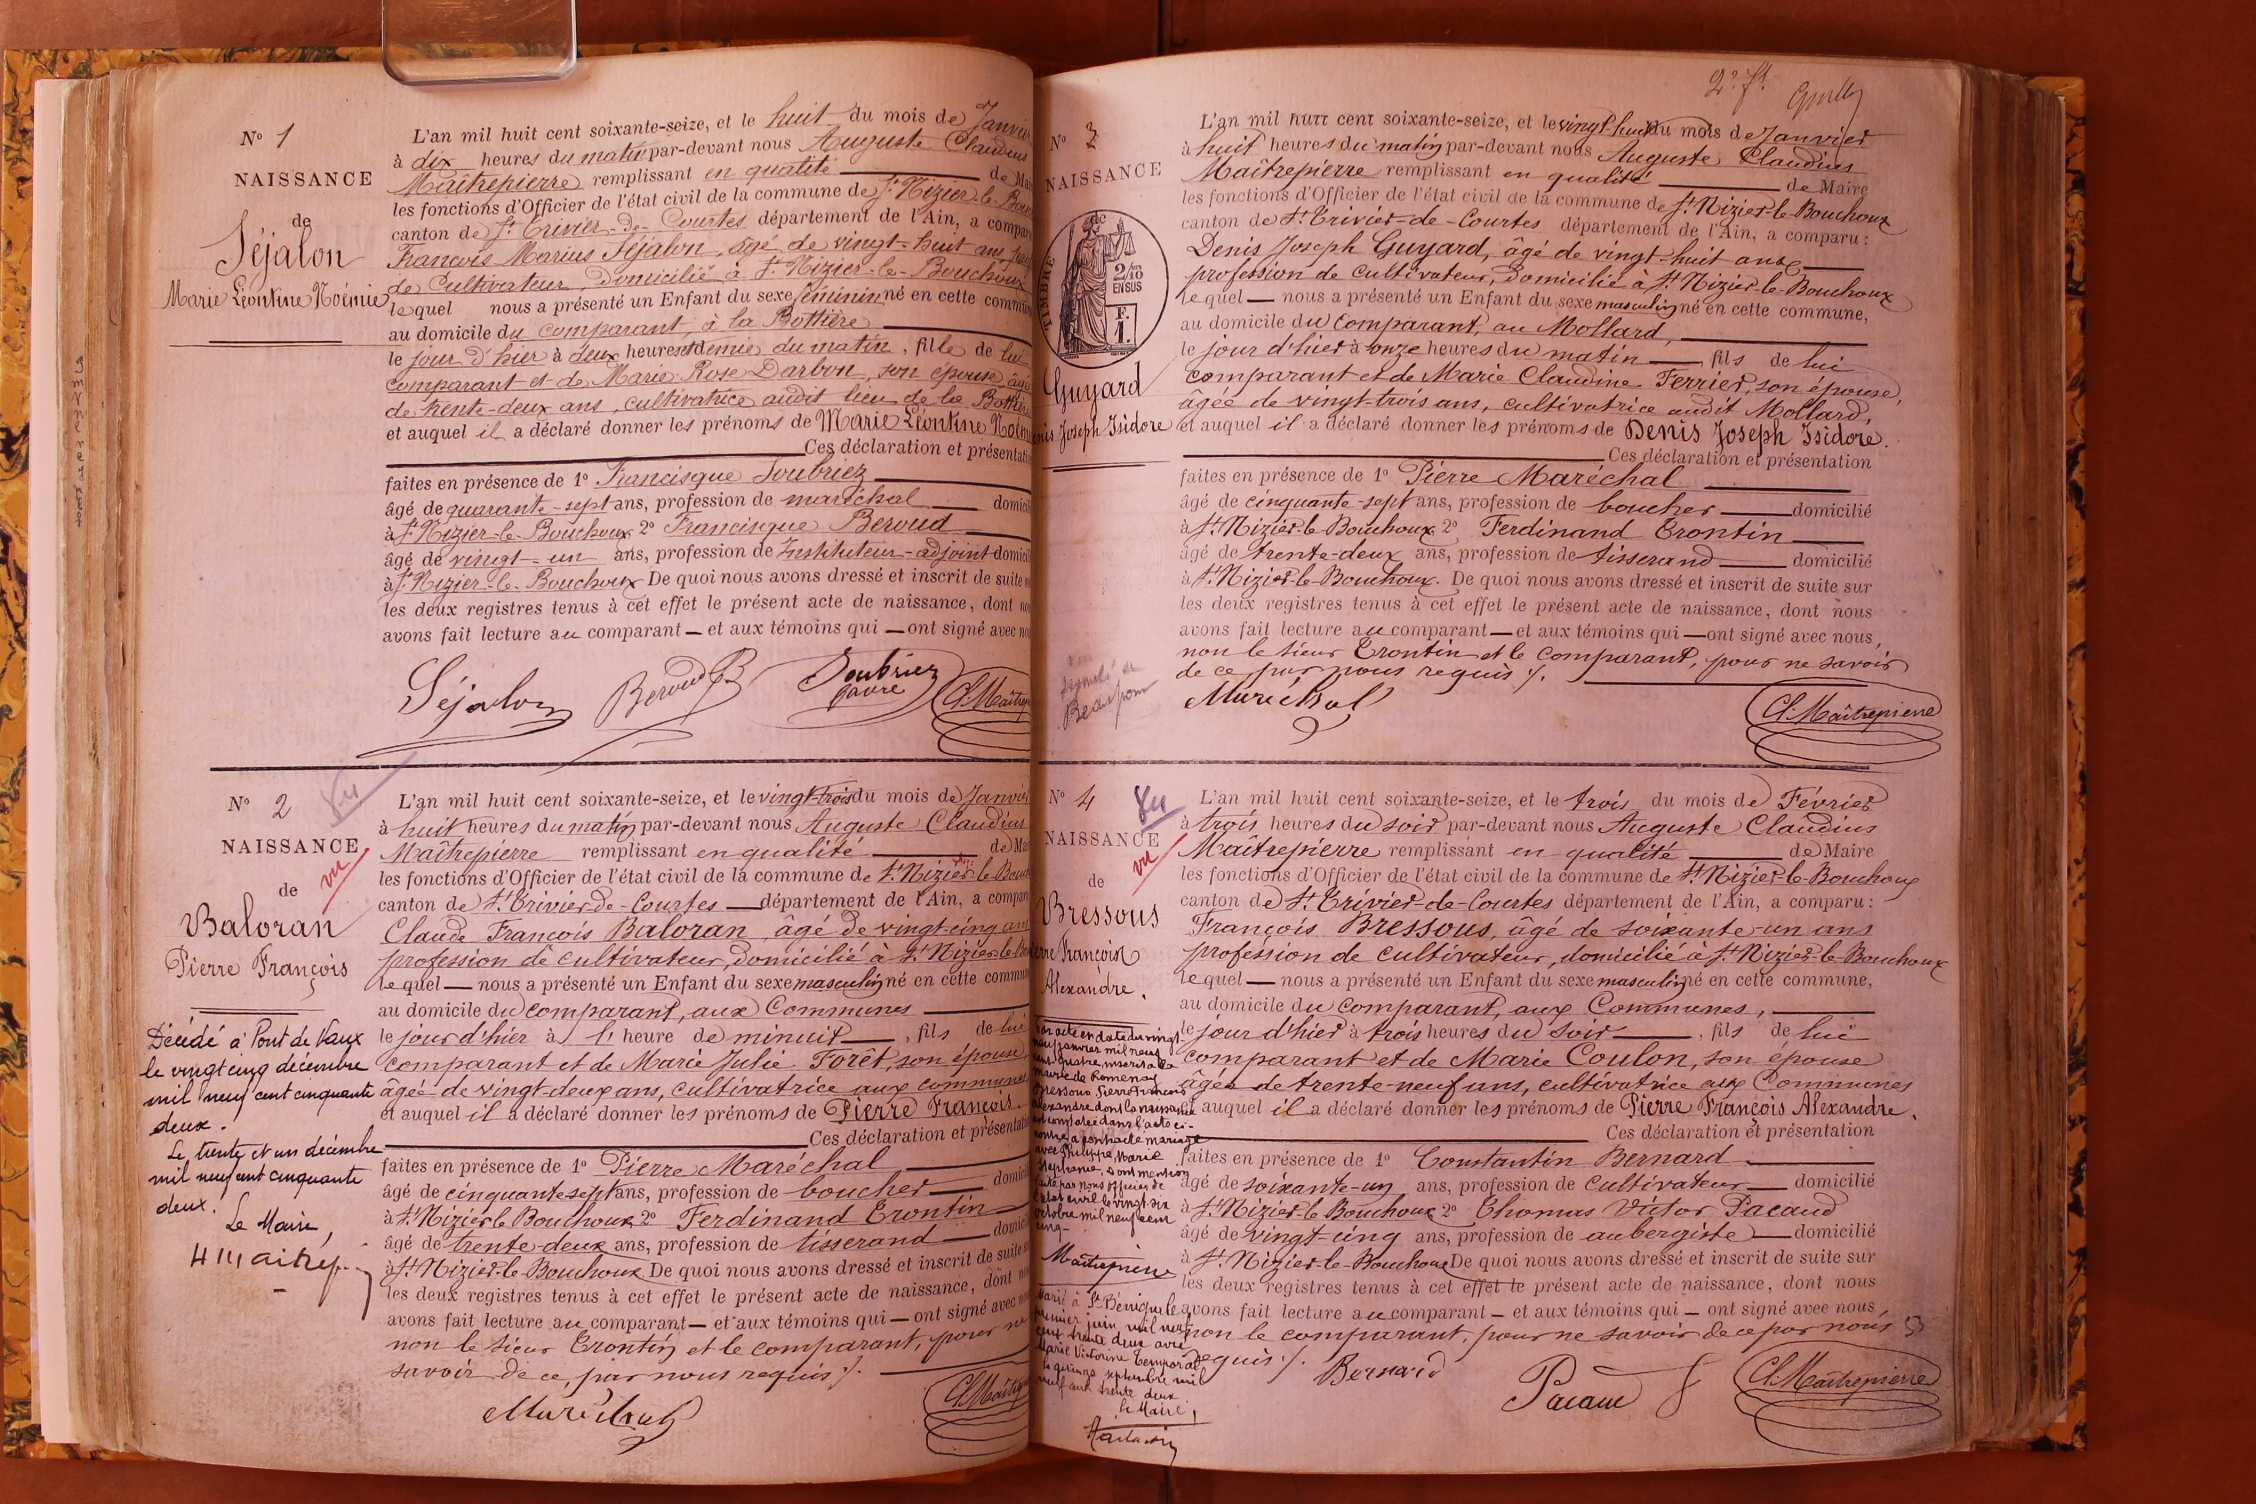 N° 1
NAISSANCE
de
Séjalon
Marie Léontine Noémie
L'an mil huit cent soixante-seize, et le huit du mois de Janvier
à dix heures du matin par-devant nous Auguste Claudius
Maîtrepierre remplissant en qualité de Mai
les fonctions d'Officier de l'état civil de la commune de St Nizier-le-Bouc
canton de St Trivier-de-Courtes département de l'Ain, a compar
François Marius Séjalon, âgé de vingt-huit ans,
de Cultivateur, domicilié à St Nizier-le-Bouchoux
lequel nous a présenté un Enfant du sexe féminin né en cette commun
au domicile du comparant, à la Bottière
le jour d'hier à deux heures et demie du matin, fille de lui
comparant et de Marie Rose Darbon, son épouse âgée
de trente-deux ans, cultivatrice audit lieu de la Bottière
et auquel il a déclaré donner les prénoms de Marie Léontine Noém
Ces déclaration et présentati
faites en présence de 1° Francisque Soubriez
âgé de quarante-sept ans, profession de maréchal domicil
à St Nizier-le-Bouchoux 2° Francisque Beroud
âgé de vingt-un ans, profession de Instituteur-adjoint domicil
à St Nizier-le-Bouchoux De quoi nous avons dressé et inscrit de suite
les deux registres tenus à cet effet le présent acte de naissance, dont no
avons fait lecture au comparant — et aux témoins qui — ont signé avec no
Séjalon Beroud Soubriez
Cl. Maîtrep
N° 2
Vu
NAISSANCE
vu
de
Baloran
Pierre François
L'an mil huit cent soixante-seize, et le vingt-trois du mois de Janvie
à huit heures du matin par-devant nous Auguste Claudius
Maîtrepierre remplissant en qualité de Mai
les fonctions d'Officier de l'état civil de la commune de St Nizier-le-Bouc
canton de St Trivier-de-Courtes — département de l'Ain, a compar
Claude François Baloran, âgé de vingt-cinq ans
profession de cultivateur, domicilié à St Nizier-le-Bo
lequel — nous a présenté un Enfant du sexe masculin né en cette commun
au domicile du comparant, aux Communes
le jour d'hier à l' heure de minuit —, fils de lui
comparant et de Marie Julie Forêt, son épouse
âgée de vingt-deux ans, cultivatrice aux communes
et auquel il a déclaré donner les prénoms de Pierre François
Ces déclaration et présentati
faites en présence de 1° Pierre Maréchal
âgé de cinquante sept ans, profession de boucher — domicil
à St Nizier le Bouchoux 2° Ferdinand Trontin
âgé de trente-deux ans, profession de tisserand — domic
à St Nizier-le-Bouchoux De quoi nous avons dressé et inscrit de suite
les deux registres tenus à cet effet le présent acte de naissance, dont
avons fait lecture au comparant — et aux témoins qui — ont signé avec
non le sieur Trontin et le comparant, pour ne
savoir de ce, par nous requis ./.
Maréchal
Cl. Maîtrep
Décédé à Pont de Vaux
le vingt cinq décembre
mil neuf cent cinquante
deux.
Le trente et un décembre
mil neuf cent cinquante
deux.
Le Maire,
N° 3
NAISSANCE
TIMBRE
2/10
EN SUS
F.
1.
Guyard
Denis Joseph Isidore
L'an mil huit cent soixante-seize, et le vingt-huit du mois de Janvier
à huit heures du matin par-devant nous Auguste Claudius
Maîtrepierre remplissant en qualité de Maire
les fonctions d'Officier de l'état civil de la commune de St Nizier-le-Bouchoux
canton de St Trivier-de-Courtes département de l'Ain, a comparu :
Denis Joseph Guyard, âgé de vingt-huit ans,
profession de cultivateur, domicilié à St Nizier-le-Bouchoux
lequel — nous a présenté un Enfant du sexe masculin né en cette commune,
au domicile du comparant, au Mollard,
le jour d'hier à onze heures du matin —, fils de lui
comparant et de Marie Claudine Ferrier, son épouse,
âgée de vingt-trois ans, cultivatrice audit Mollard,
et auquel il a déclaré donner les prénoms de Denis Joseph Isidore.
Ces déclaration et présentation
faites en présence de 1° Pierre Maréchal
âgé de cinquante-sept ans, profession de boucher — domicilié
à St Nizier-le-Bouchoux 2° Ferdinand Trontin
âgé de trente-deux ans, profession de tisserand — domicilié
à St Nizier-le-Bouchoux. De quoi nous avons dressé et inscrit de suite sur
les deux registres tenus à cet effet le présent acte de naissance, dont nous
avons fait lecture au comparant — et aux témoins qui — ont signé avec nous,
non le sieur Trontin et le comparant, pour ne savoir
de ce par nous requis ./.
Maréchal
Cl. Maîtrepierre
N° 4
Vu
NAISSANCE
vu
de
Bressous
Pierre François
Alexandre.
L'an mil huit cent soixante-seize, et le trois du mois de Février
à trois heures du soir par-devant nous Auguste Claudius
Maîtrepierre remplissant en qualité de Maire
les fonctions d'Officier de l'état civil de la commune de St Nizier-le-Bouchoux
canton de St Trivier-de-Courtes département de l'Ain, a comparu :
François Bressous, âgé de soixante-un ans
profession de cultivateur, domicilié à St Nizier-le-Bouchoux
lequel — nous a présenté un Enfant du sexe masculin né en cette commune,
au domicile du comparant, aux Communes,
le jour d'hier à trois heures du soir —, fils de lui
comparant et de Marie Coulon, son épouse
âgée de trente-neuf ans, cultivatrice aux Communes
auquel il a déclaré donner les prénoms de Pierre François Alexandre.
Ces déclaration et présentation
faites en présence de 1° Constantin Bernard
âgé de soixante-un ans, profession de cultivateur — domicilié
à St Nizier-le-Bouchoux 2° Thomas Victor Pacaud
âgé de vingt-cinq ans, profession de aubergiste — domicilié
à St Nizier-le-Bouchoux De quoi nous avons dressé et inscrit de suite sur
les deux registres tenus à cet effet le présent acte de naissance, dont nous
avons fait lecture au comparant — et aux témoins qui — ont signé avec nous,
non le comparant, pour ne savoir de ce par nous
requis ./.
Bernard
Pacaud
Cl. Maîtrepierre
Par acte en date du vingt-
neuf janvier mil neuf
cent quatre, inscrit à la
mairie de Romenay
Bressous Pierre François
Alexandre dont la naissance
est constatée dans l'acte ci-
contre, a contracté mariage
avec Philippe Marie
Stéphanie, dont mention
faite par Nous officier de
l'état civil le vingt-six
octobre mil neuf cent
cinq.
Maîtrepierre
Marié à St Bénigne le
premier juin mil neuf
cent trente deux avec
Marie Victorine Temporal
le quinze septembre mil
neuf cent trente deux
le Maire,